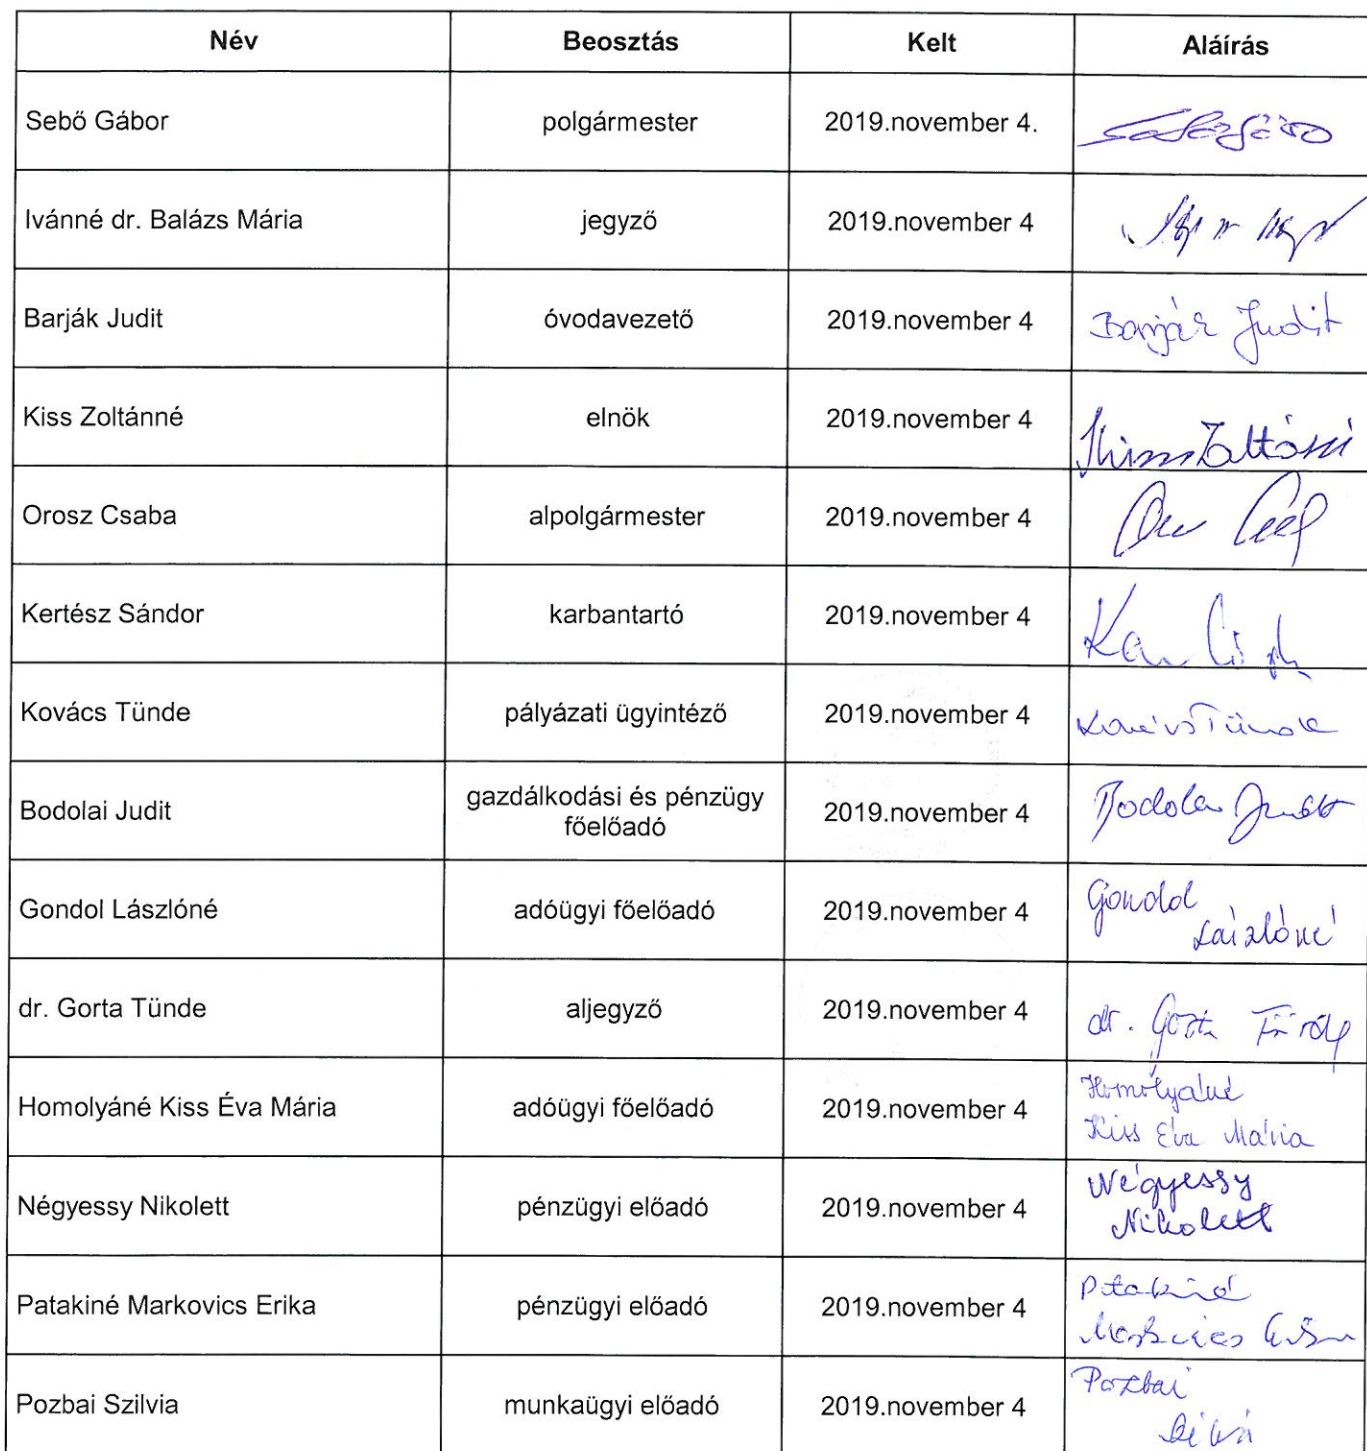 Név Beosztás Kelt Aláírás
Sebő Gábor polgármester 2019.november 4.
Ivánné dr. Balázs Mária jegyző 2019.november 4
Barják Judit óvodavezető 2019.november 4 Barják Judit
Kiss Zoltánné elnök 2019.november 4
Orosz Csaba alpolgármester 2019.november 4
Kertész Sándor karbantartó 2019.november 4
Kovács Tünde pályázati ügyintéző 2019.november 4 Kovács Tünde
Bodolai Judit gazdálkodási és pénzügy 2019.november 4 Bodolai Judit
főelőadó
Gondol Lászlóné adóügyi főelőadó 2019.november 4 Gondol
Lászlóné
dr. Gorta Tünde aljegyző 2019.november 4 dr. Gorta
Homolyáné Kiss Éva Mária adóügyi főelőadó 2019.november 4 Homolyáné
Kiss Éva Mária
Négyessy Nikolett pénzügyi előadó 2019.november 4 Négyessy
Nikolett
Patakiné Markovics Erika pénzügyi előadó 2019.november 4 Patakiné
Markovics Erika
Pozbai Szilvia munkaügyi előadó 2019.november 4 Pozbai